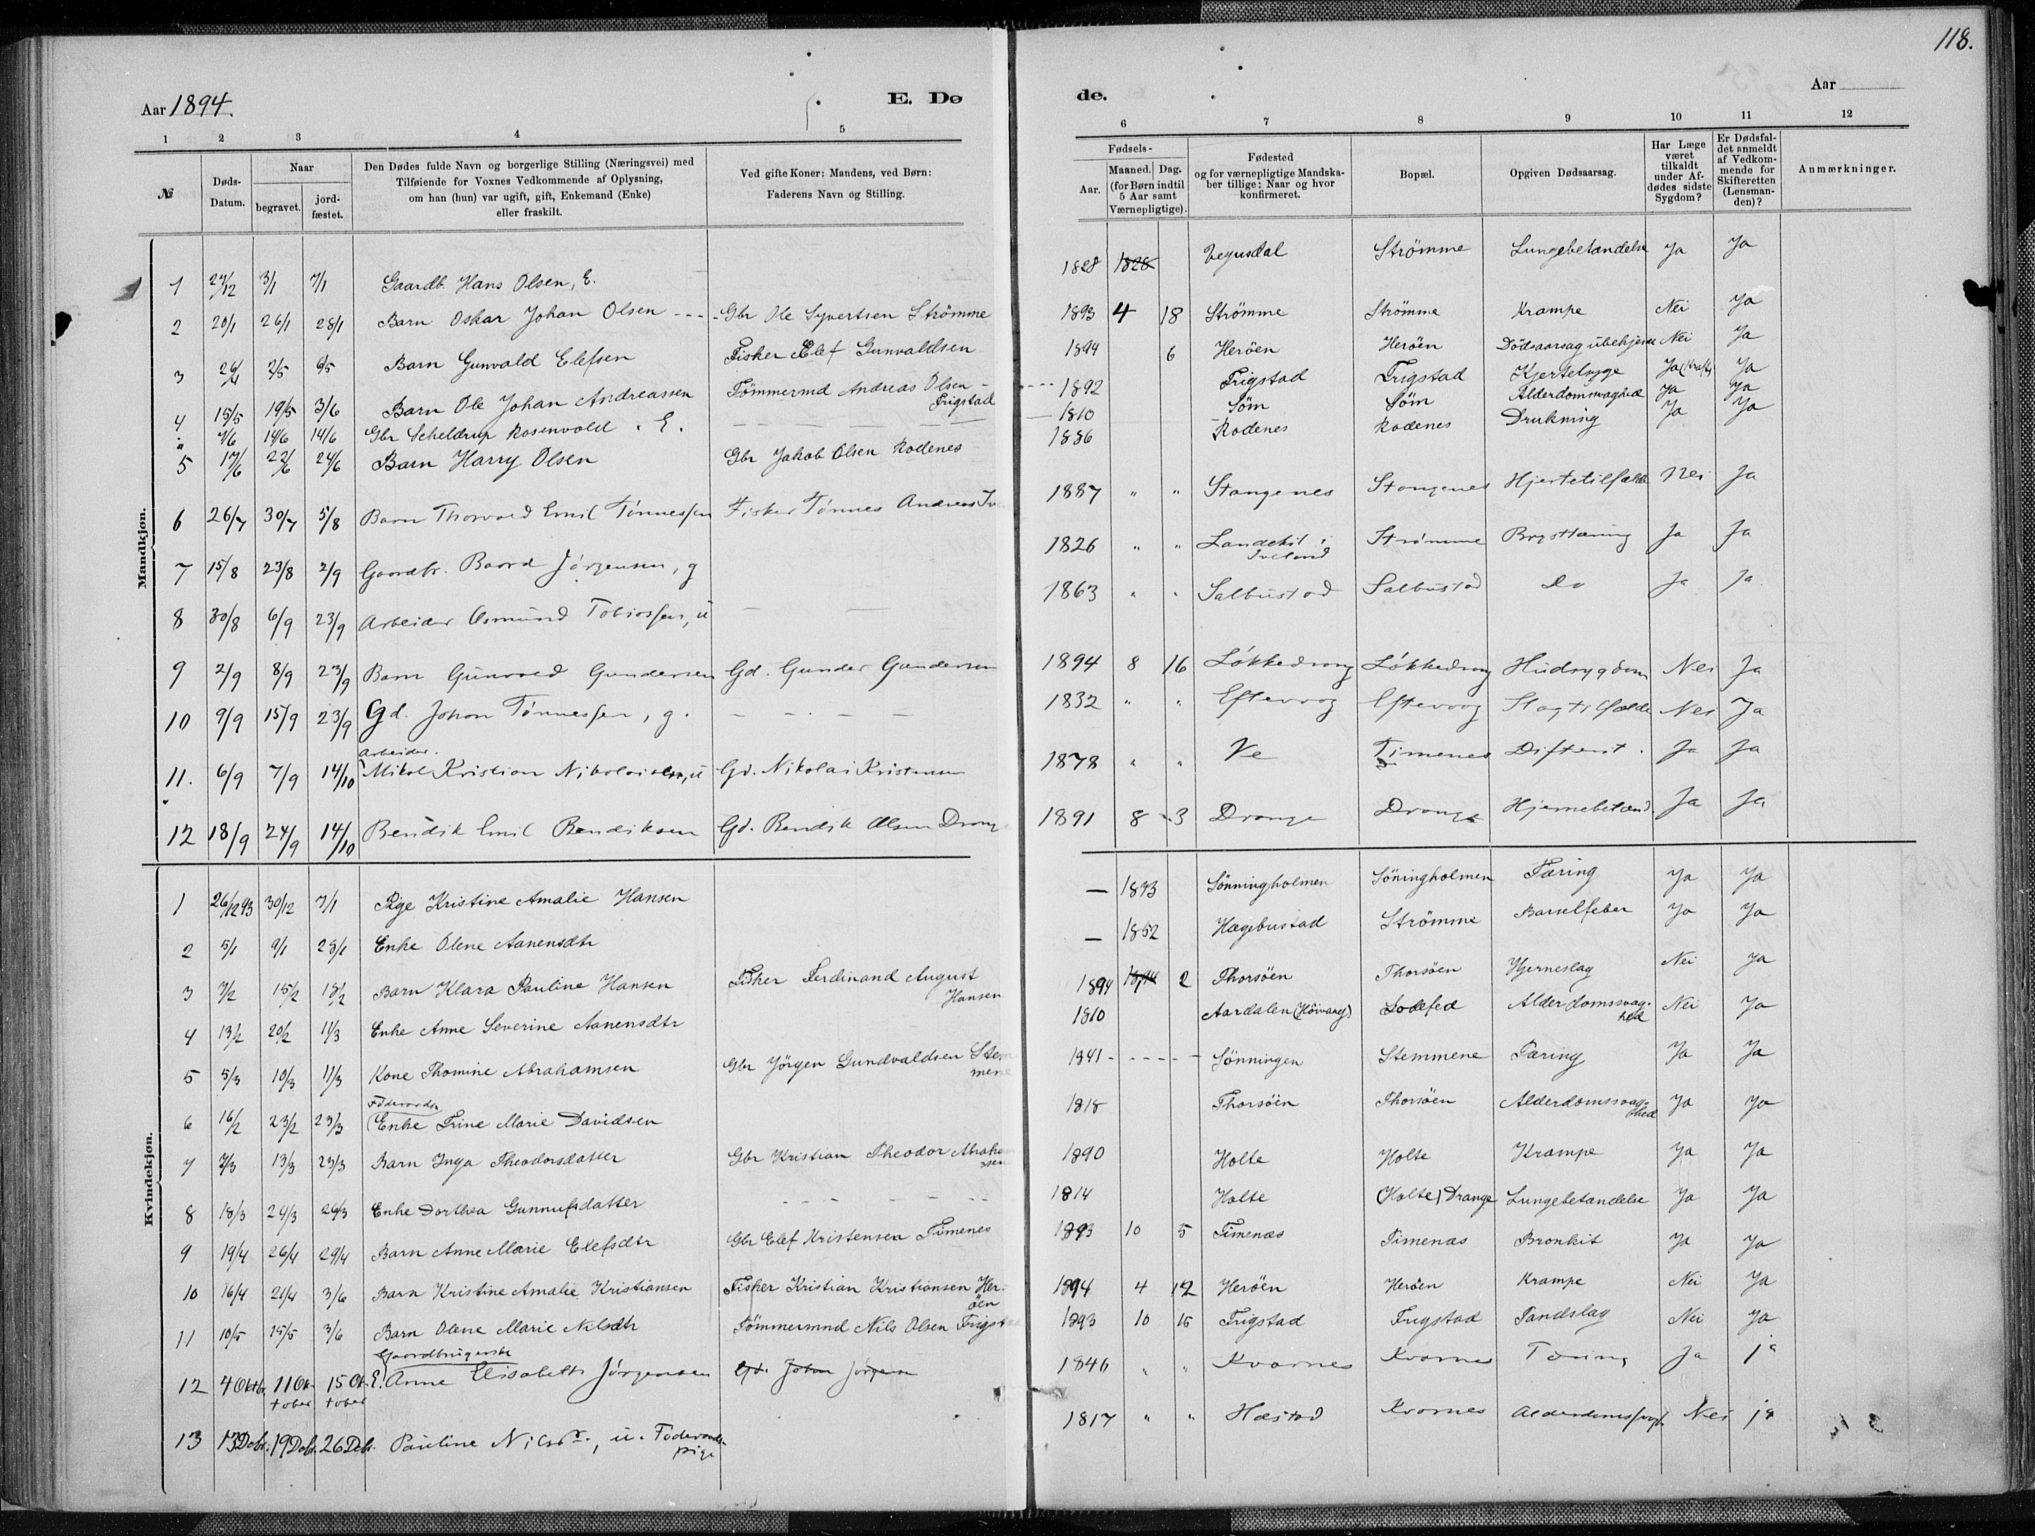 118.
Aar 1894.
E. Dø
de.
Aar
1 2 3 4 5 6 7 8 9 10 11 12
№
Døds-Datum.
Naar
begravet.
jord-fæstet.
Den Dødes fulde Navn og borgerlige Stilling (Næringsvei) med
Tilføiende for Voxnes Vedkommende af Oplysning,
om han (hun) var ugift, gift, Enkemand (Enke)
eller fraskilt.
Ved gifte Koner: Mandens, ved Børn:
Faderens Navn og Stilling.
Fødsels-
Aar.
Maaned. Dag.
(for Børn indtil
5 Aar samt
Værnepligtige).
Fødested
og for værnepligtige Mandska-
ber tillige: Naar og hvor
konfirmeret.
Bopæl.
Opgiven Dødsaarsag.
Har Læge
været
tilkaldt
under Af-
dødes sidste
Sygdom?
Er Dødsfal-
det anmeldt
af Vedkom-
mende for
Skifteretten
(Lensman-
den)?
Anmærkninger.
Mandkjøn.
1 27/12 3/1 7/1 Gaardb. Hans Olsen, E. 1828 1828 Vegusdal Strömme Lungebetændelse Ja Ja
2 20/1 26/1 28/1 Barn Oskar Johan Olsen Gbr Ole Syvertsen Strömme 1893 4 18 Strömme Strömme Krampe Nei Ja
3 26/4 2/5 6/5 Barn Gunvald Elefsen Fisker Elef Gunvaldsen 1894 6 Heröen Heröen Dödsaarsag ubekjendt Nei Ja
4 15/5 19/5 3/6 Barn Ole Johan Andreassen Tömmermd Andreas Olsen Frigstad 1892 Frigstad Frigstad Kjertelsyge Ja Ja
Gbr Scheldrup Rosenvold . E. 14/6 14/6 1810 Söm Söm Alderdomssvaghed Ja Ja
5 17/6 22/6 24/6 Barn Harry Olsen Gbr Jakob Olsen Rodenes 1886 Rodenes Rodenes Drukning Ja Ja
6 26/7 30/7 5/8 Barn Thorvald Emil Tønnessen Fisker Tønnes Andreas 1887 " " Stangenes Stangenes Hjertetilfælde Nei Ja
7 15/8 23/8 2/9 Gaardbr. Baard Jörgensen, g 1826 " " Landekil i Iveland Strömme Brysttæring Ja Ja
8 30/8 6/9 23/9 Arbeider Osmund Tobiassen, u 1863 " " Salbustad Salbustad Do Ja Ja
9 2/9 8/9 23/9 Barn Gunvald Gundersen Gd. Gunder Gundersen 1894 8 16 Løkkedrang Løkkedrang Hudsygdom Nei Ja
10 9/9 15/9 23/9 Gd. Johan Tønnessen, g. 1832 " " Eftevaag Eftevaag Slagtilfælde Nei Ja
11. 6/9 7/9 14/10 Arbeider Mikal Kristian Nikolaisen, u Gd. Nikolai Kristensen 1878 " " Ve Timenes Difterit. Ja Ja
12 18/9 24/9 14/10 Bendik Emil Bendiksen Gd. Bendik Olsen Drange 1891 8 3 Drange Drange Hjernebetænd Ja Ja
Kvindekjøn.
1 26/12 93 30/12 7/1 Pige Kristine Amalie Hansen 1873 Sönningholmen Söningholmen Tæring Ja Ja
2 5/1 9/1 28/1 Enke Olene Aanensdtr 1852 Hægebustad Strömme Barselfeber Ja Ja
3 7/2 15/2 18/2 Barn Klara Pauline Hansen Fisker Ferdinand August Hansen 1894 1894 2 Thorsöen Thorsöen Hjerneslag Nei Ja
4 13/2 20/2 11/3 Enke Anne Severine Aanensdtr 1810 Aardalen (Hövaag) Lodefed Alderdomssvaghed Nei Ja
5 5/3 10/3 11/3 Kone Thomine Abrahamsen Gbr Jörgen Gundvaldsen Stemmene 1841 Sönningen Stemmene Tæring Ja Ja
6 16/2 23/2 23/3 Föderaads Enke Trine Marie Davidsen 1818 Thorsöen Thorsöen Alderdomssvaghed Ja Ja
7 7/3 13/3 23/3 Barn Inga Theodorsdatter Gbr Kristian Theodor Abrahamsen 1890 Holte Holte Krampe Ja Ja
8 18/3 24/3 26/3 Enke Dorthea Gunnufsdatter 1814 Holte (Holte) Drange Lungebetændelse Ja Ja
9 19/4 26/4 29/4 Barn Anne Marie Elefsdtr Gbr Elef Kristensen Timenes 1893 10 5 Timenæs Timenæs Bronkit Ja Ja
10 16/4 21/4 3/6 Barn Kristine Amalie Kristiansen Fisker Kristian Kristiansen Heröen 1894 4 12 Heröen Heröen Krampe Nei Ja
11 10/5 15/5 3/6 Barn Olene Marie Nilsdtr Tömmermnd Nils Olsen Frigstad 1893 10 15 Frigstad Frigstad Tandslag Nei Ja
12 4 Oktb. 11 Oktober 15 Oktober Gaardbrugerske E. Anne Elisabeth Jörgensen Gd. John Jörgen 1846 " " Kvarnes Kvarnes Tæring Ja ja
13 13 Debr. 19 Debr. 26 Debr. Pauline Nilsdr., u. Föderaadspige 1817 " " Hæstad Kvarnes Nei ja